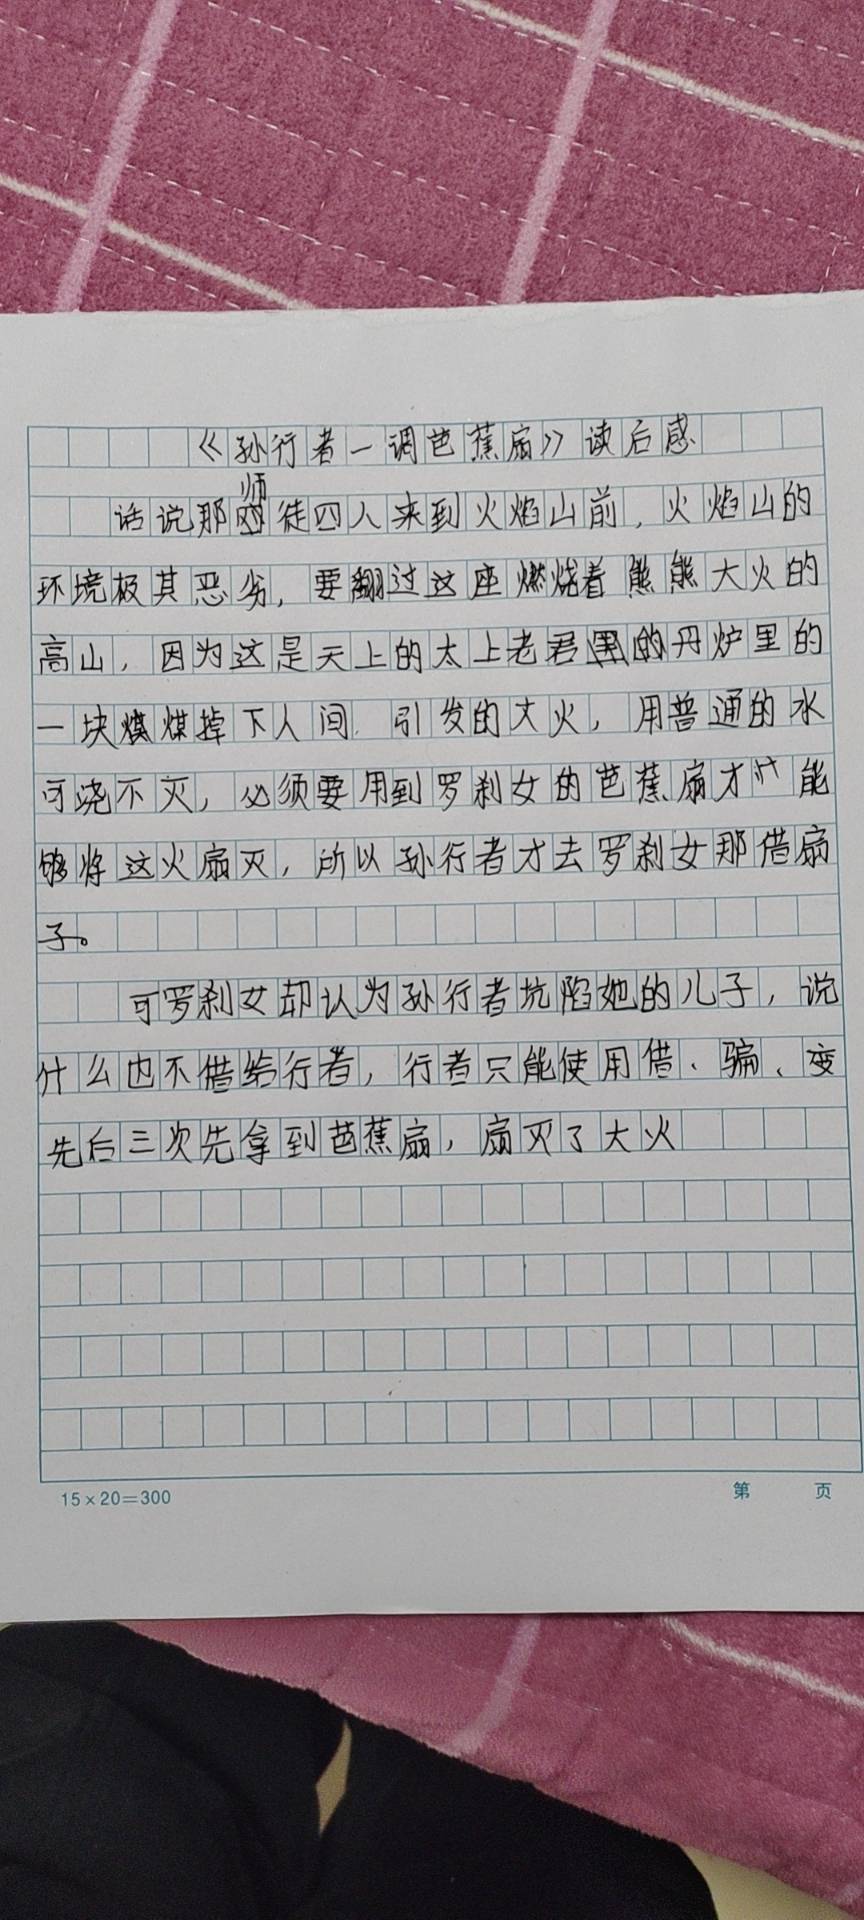 《孙行者一调芭蕉扇》读后感
话说那师徒四人来到火焰山前，火焰山的
环境极其恶劣，要翻过这座燃烧着熊熊大火的
高山，因为这是天上的太上老君的丹炉里的
一块煤煤掉下人间.引发的大火，用普通的水
可浇不灭，必须要用到罗刹女的芭蕉扇才能
够将这火扇灭，所以孙行者才去罗刹女那借扇
子。
可罗刹女却认为孙行者坑陷她的儿子，说
什么也不借给行者，行者只能使用借、骗、变
先后三次先拿到芭蕉扇，扇灭了大火
15×20=300
第 页